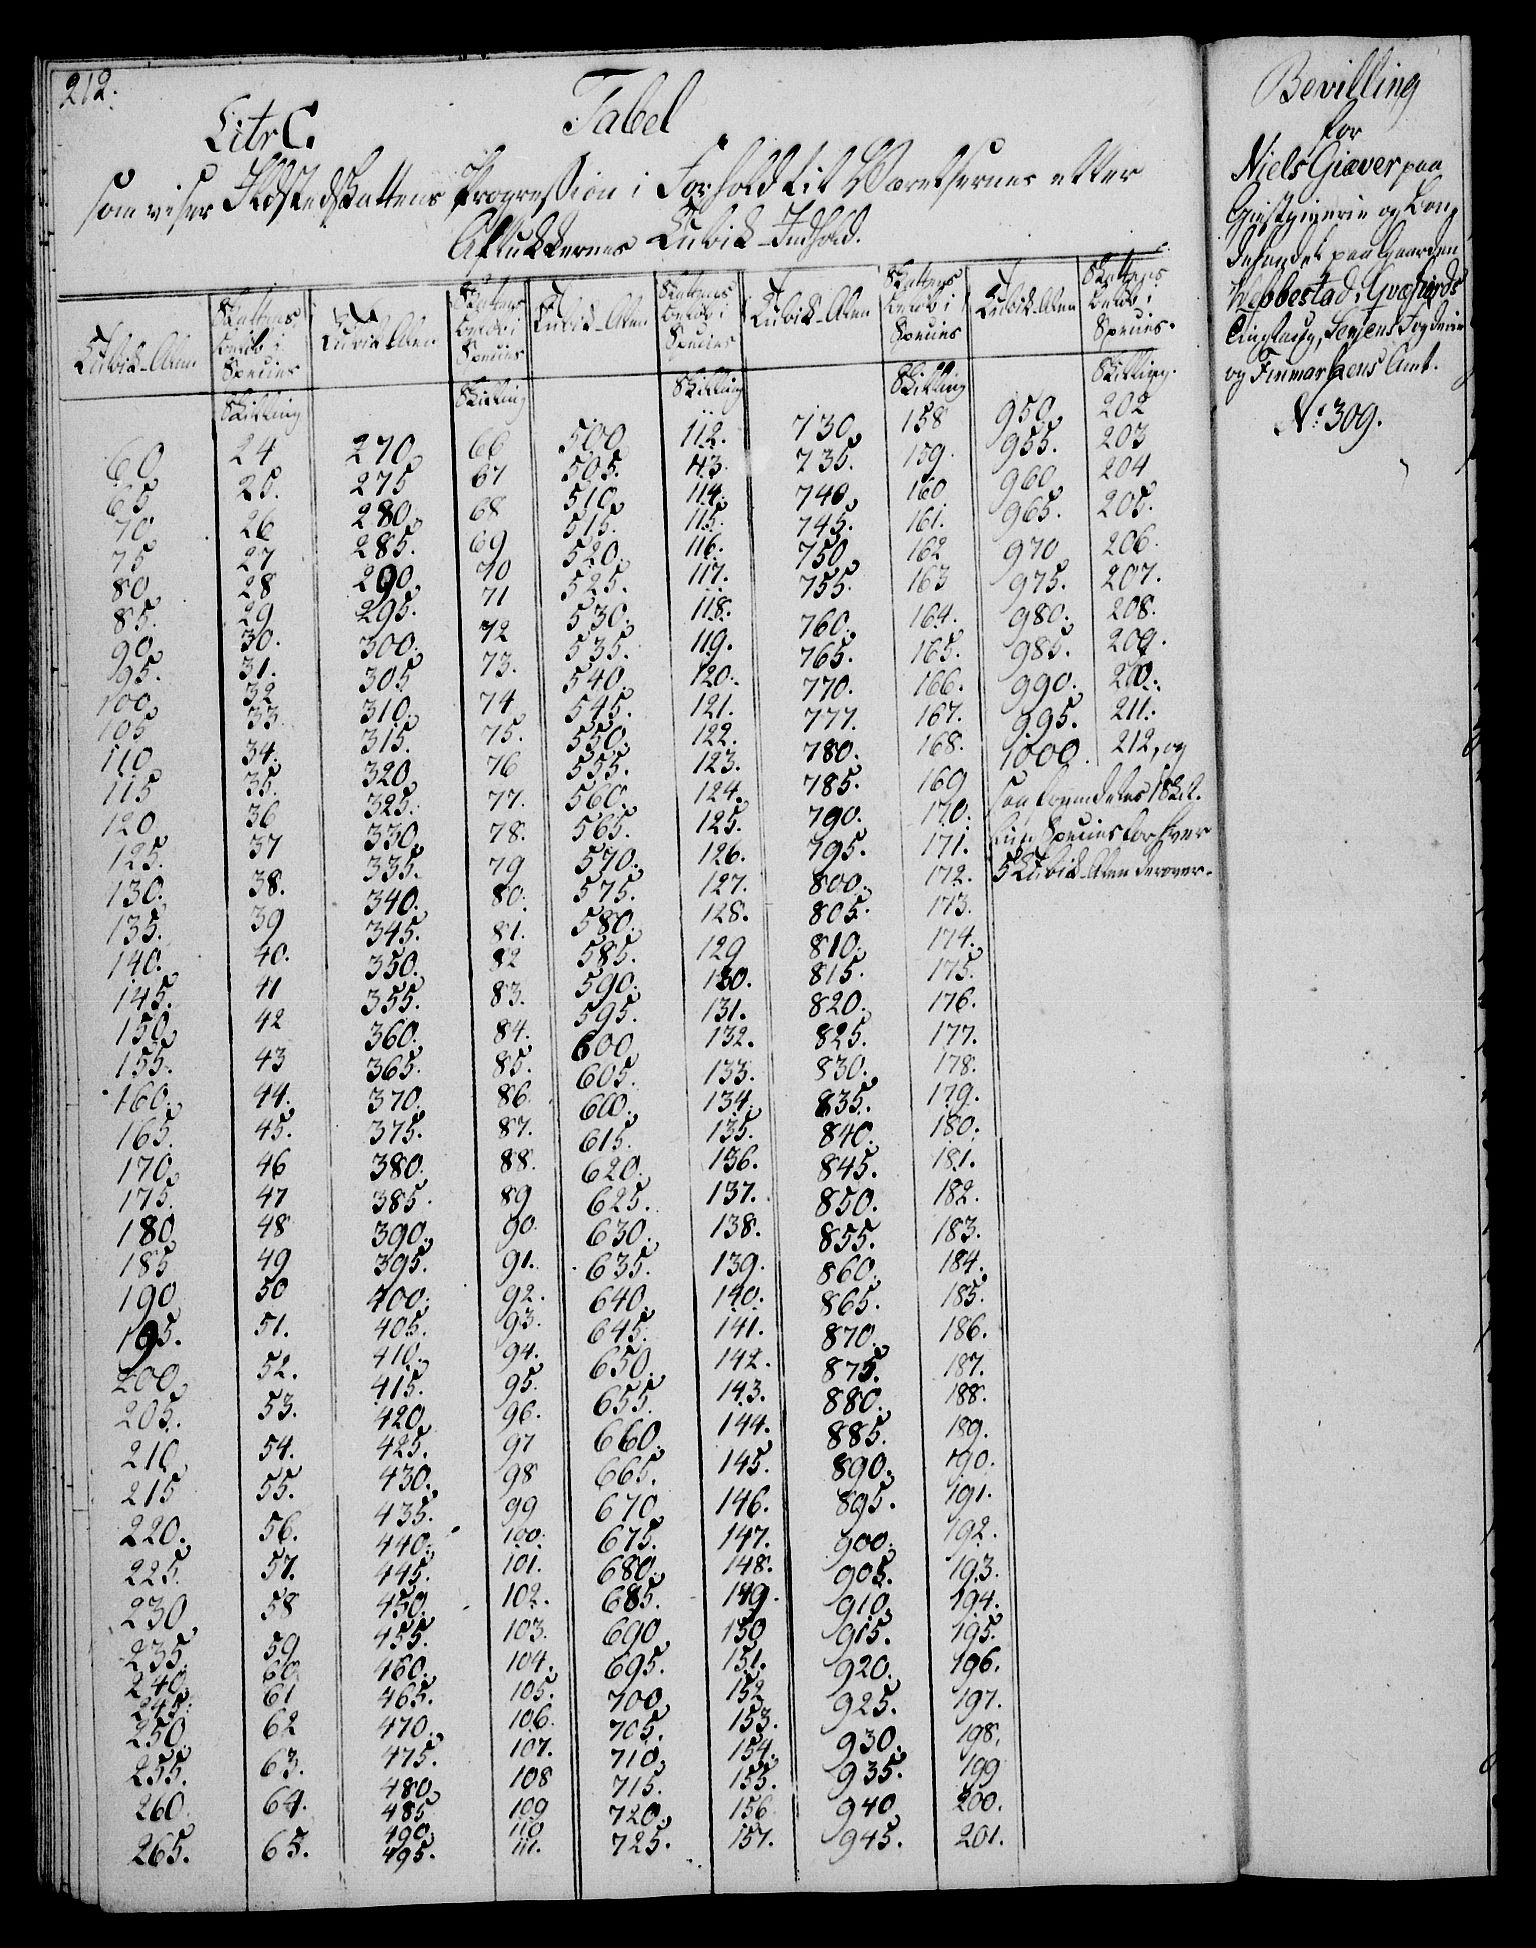 212.
Litr C.
Tabel
som viser Ildstedskattens Progression i Forhold til Værelsernes eller
Aflukkernes Cubik-Indhold.
Cubik-Alen | Skattens Beløb i Species | Cubik Alen | Skattens Beløb i Species | Cubik-Alen | Skattens Beløb i Species | Cubik-Alen | Skattens Beløb i Species | Cubik-Alen | Skattens Beløb i Species.
Skilling | Skilling | Skilling | Skilling | Skilling.
60 24 270. 66 500 112. 730. 158 950. 202
65 25. 275 67 505. 113. 735. 159. 955. 203
70 26 280. 68 510. 114. 740. 160 960 204
75 27 285. 69 515. 115. 745. 161. 965. 205.
80 28 290. 70 520. 116. 750 162 970 206.
85. 29 295. 71 525. 117. 755. 163 975. 207.
90. 30. 300. 72 530. 118. 760. 164. 980. 208.
95. 31. 305 73. 535. 119. 765. 165. 985. 209.
100. 32 310. 74 540. 120. 770. 166. 990. 210.
105 33. 315. 75. 545. 121. 777. 167. 995. 211.
110 34. 320 76 550. 122. 780. 168. 1000. 212, og
115 35. 325. 77. 555. 123. 785. 169 saa fremdeles 1 Skil.
120 36 330 78. 560. 124. 790. 170. ling Species for hver
125. 37 335. 79 565. 125. 795. 171. 5 Cubik-Alen derover.
130. 38. 340. 80. 570. 126. 800. 172.
135. 39 345. 81. 575. 127. 805. 173.
140. 40. 350. 82 580. 128. 810. 174.
145. 41 355. 83. 585. 129 815. 175.
150. 42 360. 84. 590. 130. 820. 176.
155. 43 365. 85. 595. 131. 825. 177.
160. 44. 370. 86. 600 132. 830. 178.
165. 45. 375. 87. 605. 133. 835. 179.
170. 46 380. 88. 610. 134. 840. 180.
175. 47 385. 89 615. 135. 845. 181.
180 48 390. 90. 620. 136. 850. 182.
185 49 395. 91. 625. 137. 855. 183.
190 50 400. 92. 630. 138. 860. 184.
195. 51. 405. 93. 635. 139. 865. 185.
200. 52. 410. 94. 640. 140. 870. 186.
205. 53. 415. 95. 645. 141. 875. 187.
210. 54. 420 96. 650. 142. 880. 188.
215 55. 425. 97 655. 143. 885. 189.
220. 56. 430. 98 660. 144. 890. 190.
225. 57. 435. 99 665. 145. 895. 191.
230 58 440. 100. 670 146. 900. 192.
235. 59 445. 101. 675. 147. 905. 193.
240. 60 450. 102. 680. 148. 910. 194.
245. 61 455. 103. 685. 149. 915. 195.
250. 62 460. 104. 690 150 920. 196.
255. 63. 465. 105. 695. 151. 925. 197.
260. 64. 470. 106. 700. 152 930. 198.
265. 65. 475. 107. 705. 153. 935. 199
480. 108 710. 154. 940 200.
485 109 715. 155. 945. 201.
490. 110 720. 156
495. 111. 725. 157.
Bevilling
for
Niels Giæver paa
Giestgiverie og Bon
dehandel paa Gaarden
Kebbestad i Qvæfiords
Tinglaug, Senjens Fogderie
og Finmarkens Amt.
No: 309.